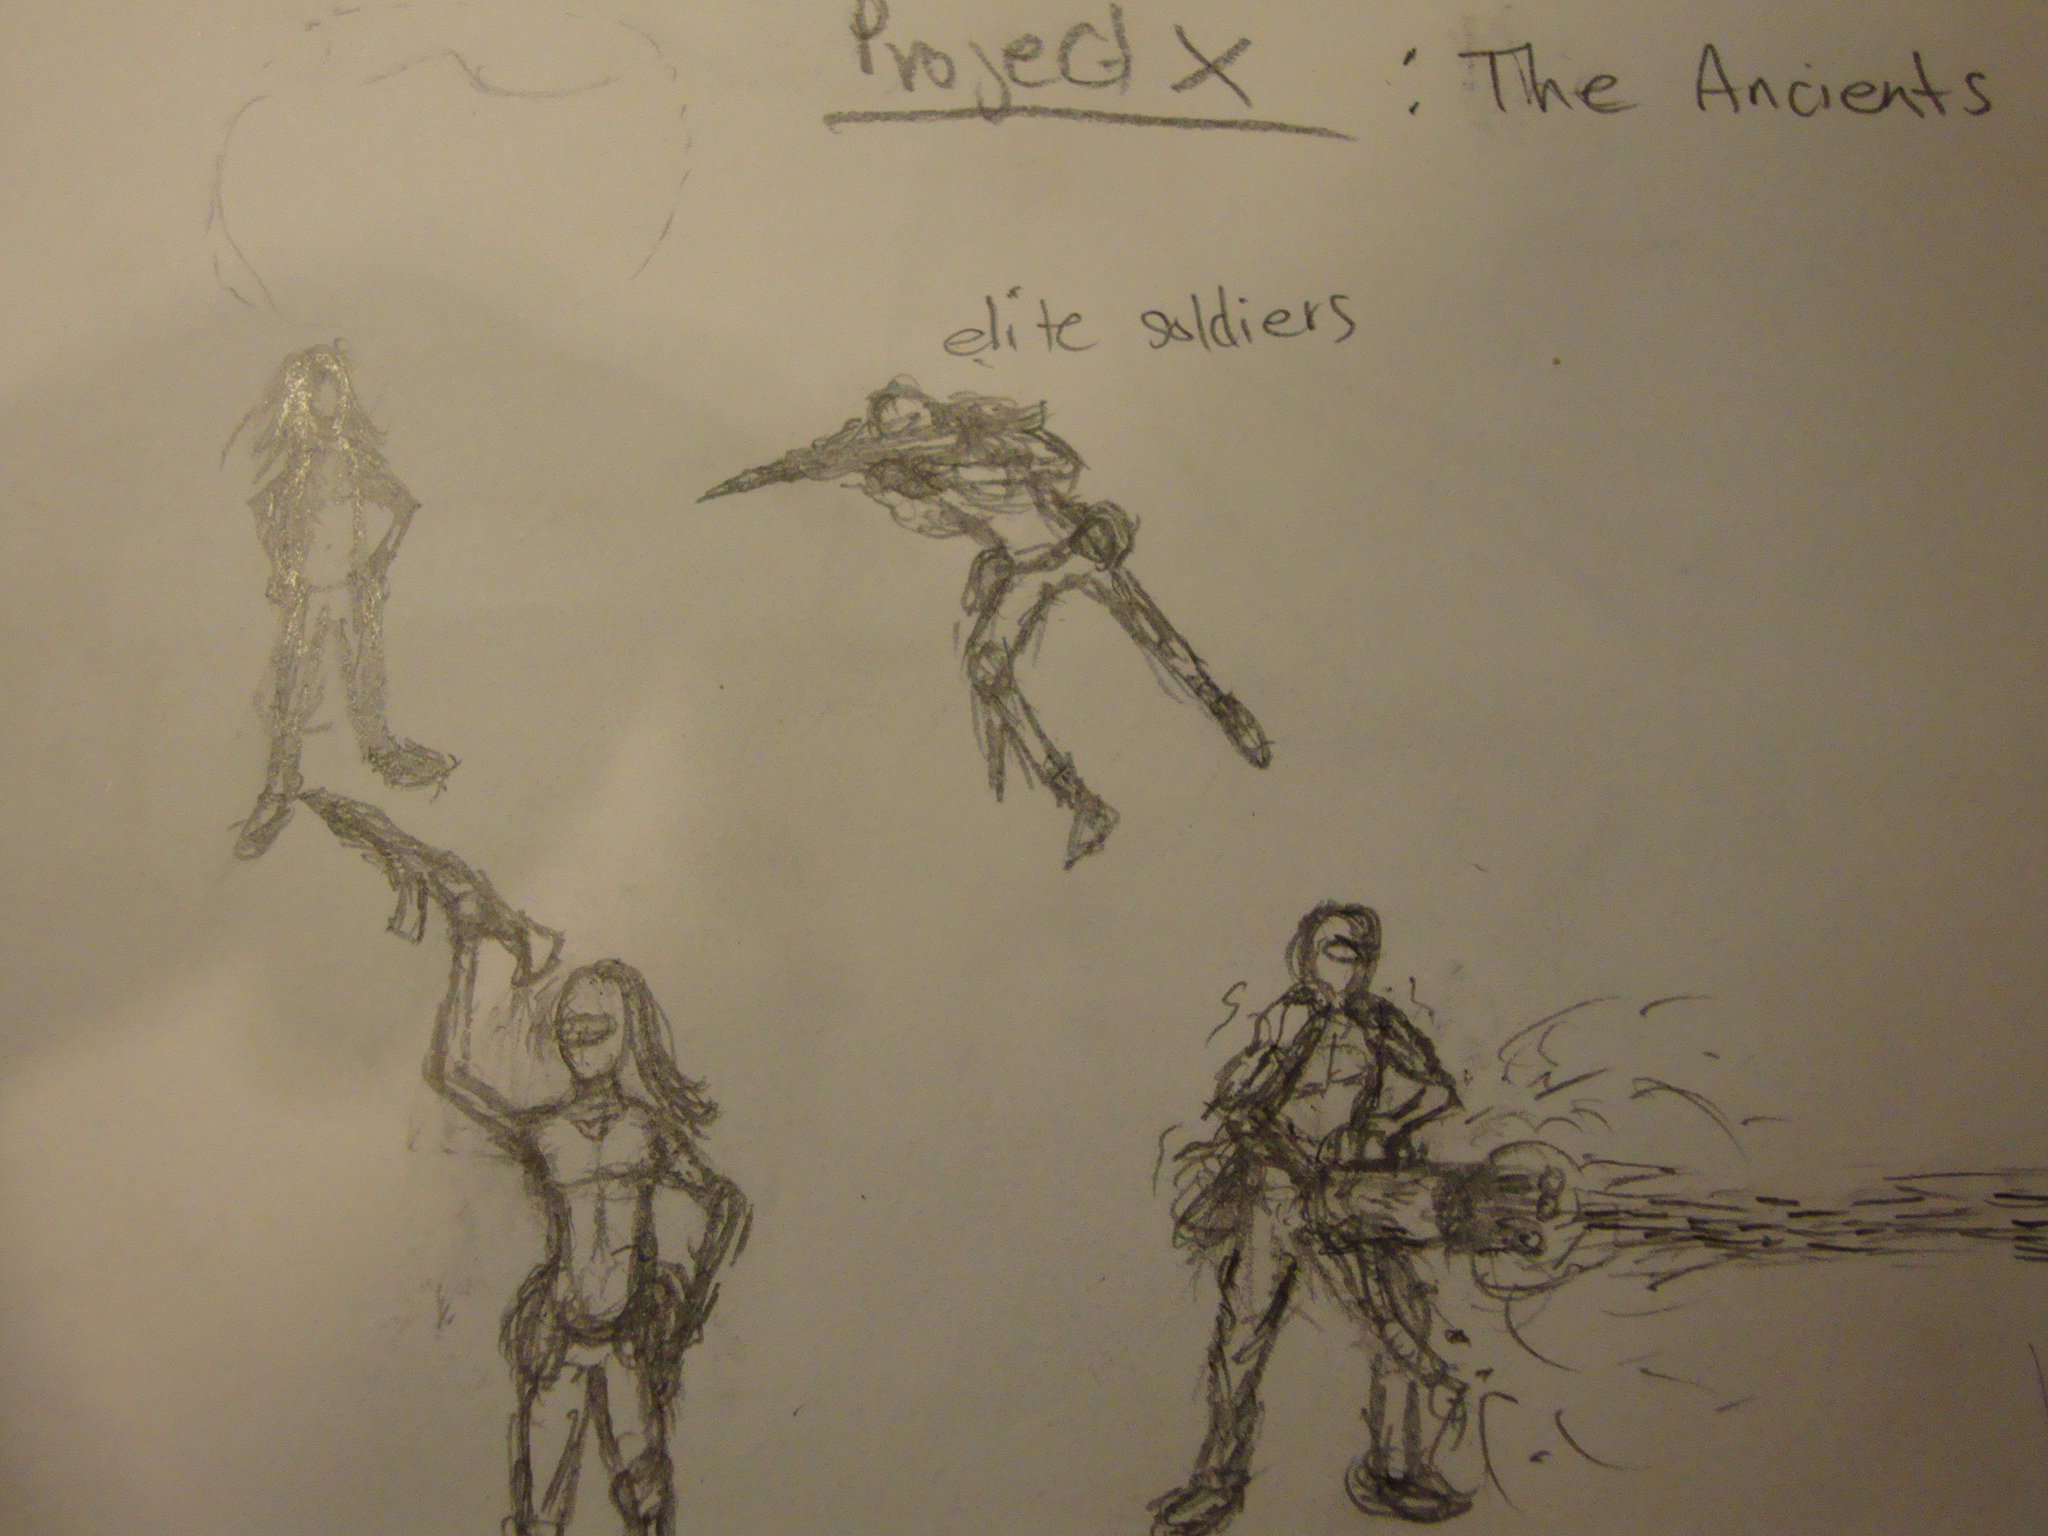 Project X : The Ancients
elite soldiers